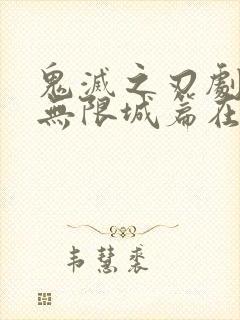 鬼滅之刃劇
無限城篇在
韋慧裘